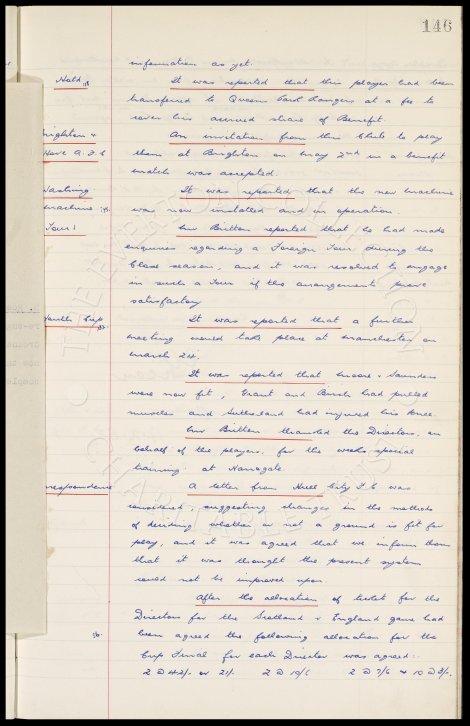 146
information as yet.
Hold 118 It was reported that this player had been
transferred to Queens Park Rangers at a fee to
cover his accrued share of Benefit.
righton & An invitation from this Club to play
Hove A.F.C them at Brighton on May 2nd in a benefit
match was accepted.
Washing It was reported that the new machine
machine was now installed and in operation.
Tour! Mr Britton reported that he had made
enquiries regarding a Foreign Tour during the
Close season, and it was resolved to engage
in such a Tour if the arrangements prove
satisfactory
Youth Cup It was reported that a further
meeting would take place at Manchester on
March 24.
It was reported that Moore & Saunders
were now fit, Grant and Birch had pulled
muscles and Sutherland had injured his knee.
Mr Britton thanked the Directors, on
behalf of the players, for the weeks special
training at Harrogate.
rrespondence A letter from Hull City F.C was
considered, suggesting changes in the methods
of deciding whether or not a ground is fit for
play, and it was agreed that we inform them
that it was thought the present system
could not be improved upon.
After the allocation of tickets for the
Directors for the Scotland v England game had
been agreed the following allocation for the
Cup Final for each Director was agreed:-
2 @ 42/- or 21/- 2 @ 10/6 2 @ 7/6 & 10 @ 3/-.
THE EVERTON COLLECTION
CHARITABLE TRUST